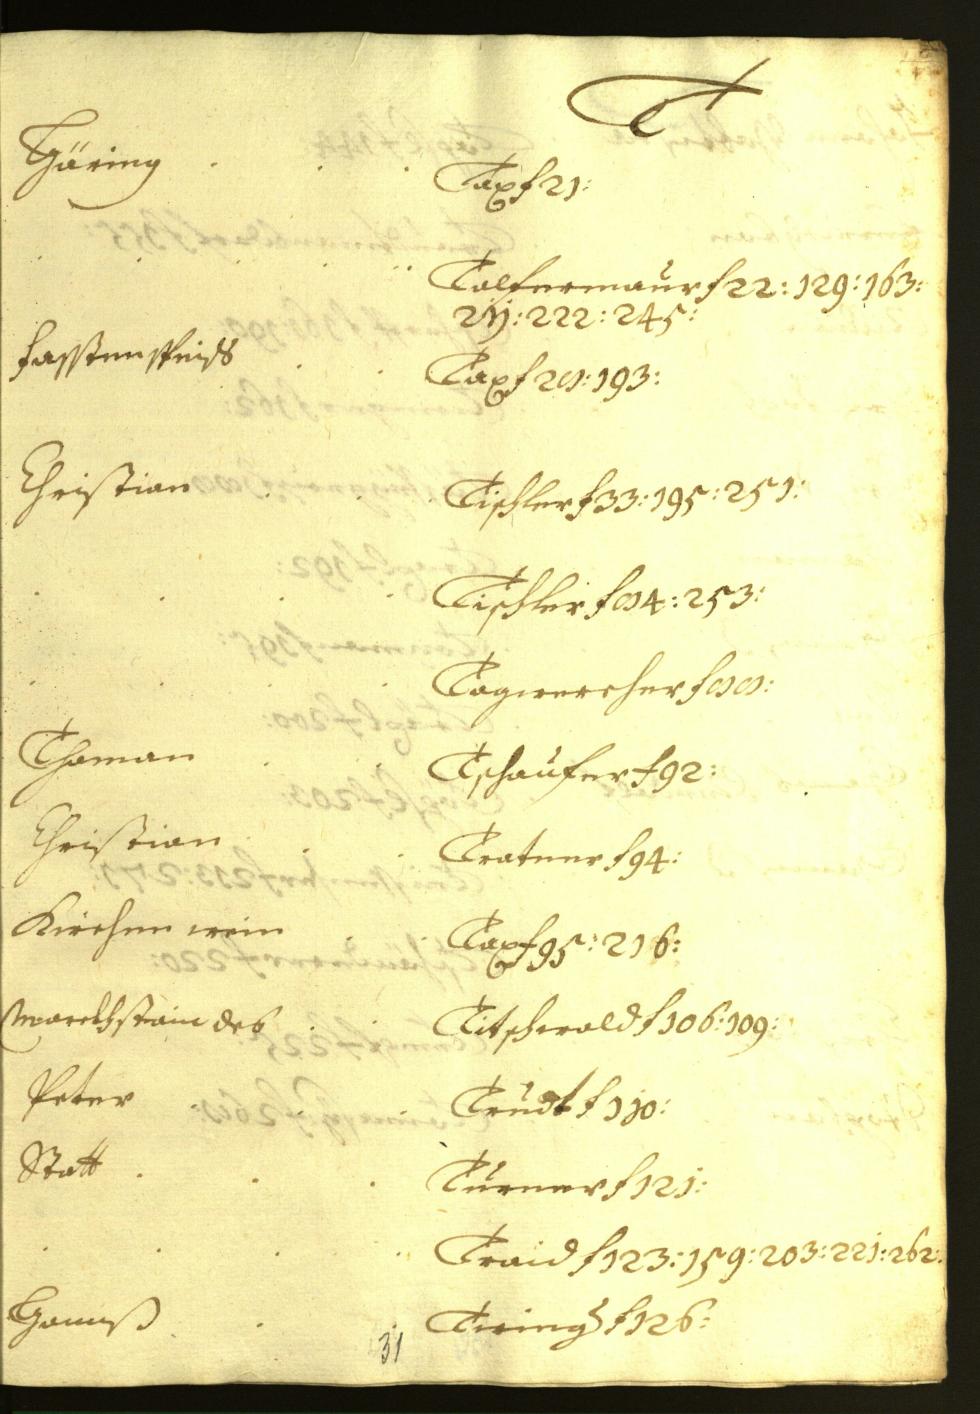 T
Häring . . . Tax f 21:
. . . . Talfermaur f 22: 129: 163:
211: 222: 245:
fasstenspeiss . . Tax f 28: 193:
Christian . . . Tischler f 33: 195: 251:
. . . . Tischler f 84: 253:
. . . . Tagwercher f 88:
Thoman . . Tschaufer f 92:
Christian . . . Tratner f 94:
Kirchen wein . Tax f 95: 216:
Marckhstain deß . . Titschwald f 106: 109:
Peter . . . Trudt f 110:
Statt . . . Turner f 121:
. . . . Traid f 123: 159: 203: 221: 262:
Hannß . . Tiring f 126:
31